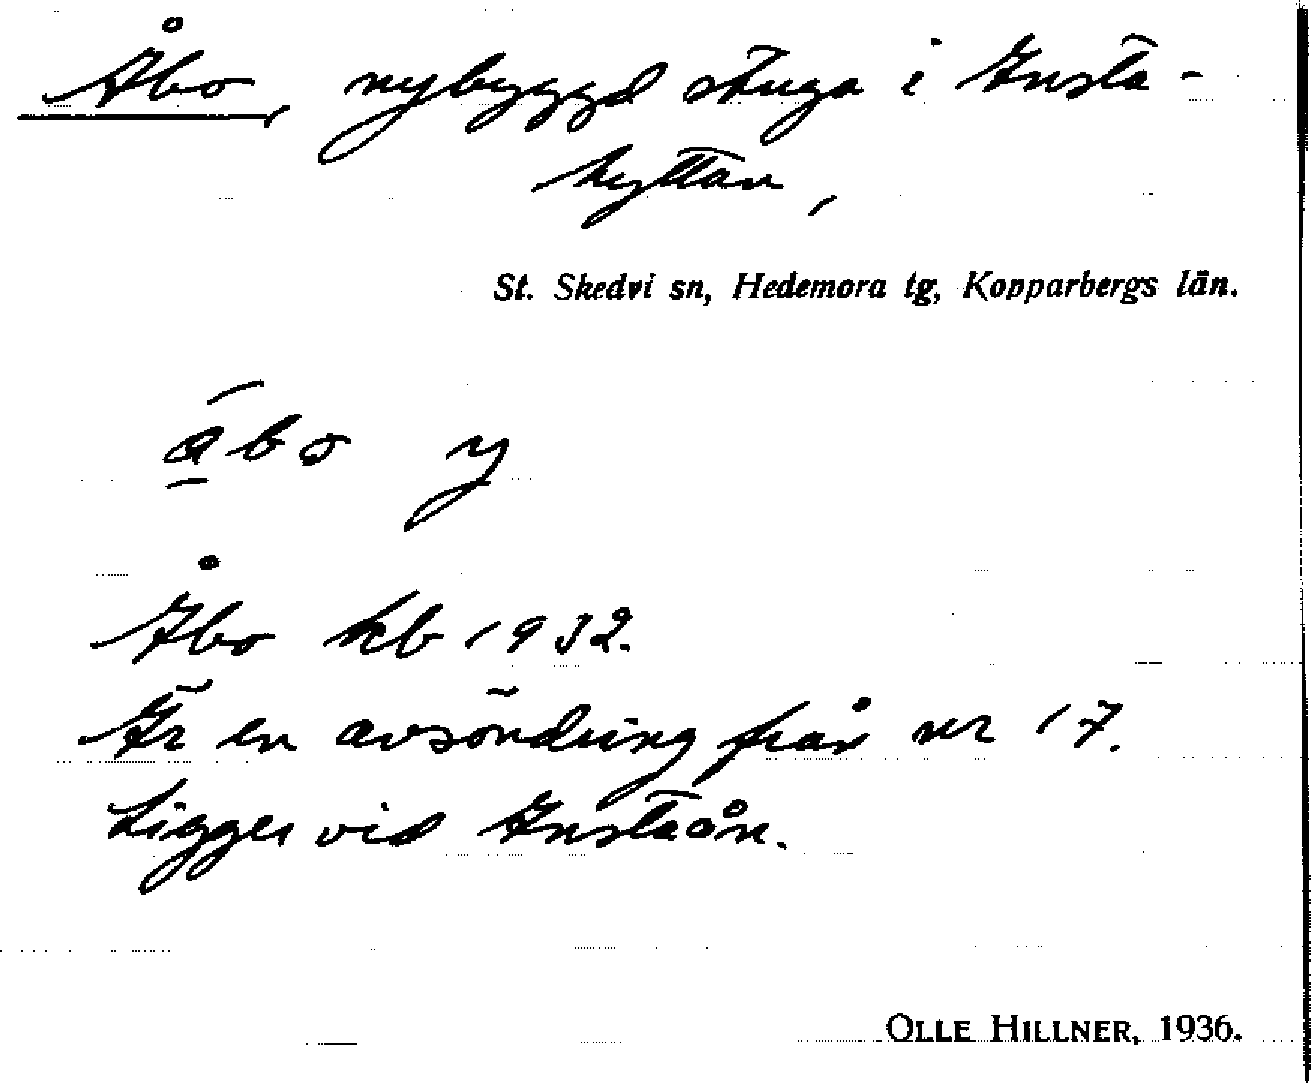 Åbo, nybyggd stuga i Ensta-
hyttan,
St. Skedvi sn, Hedemora tg, Kopparbergs län.
åbo y
Åbo kb 1932.
Är en avsöndring från nr 17.
Ligger vid Enstaån.
OLLE HILLNER, 1936.